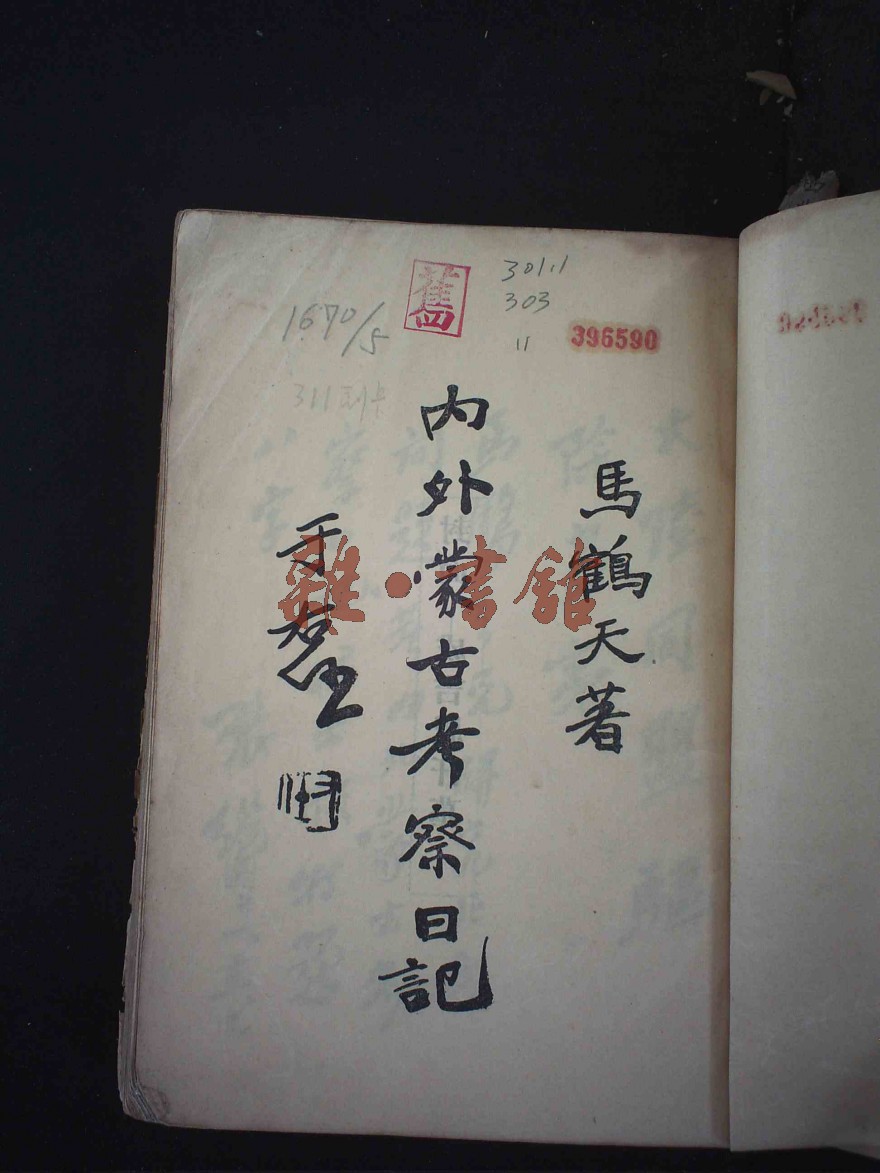 舊
1670/5
30111
303
11
396590
馬鶴天著
內外蒙古考察日記
于右任
雜·書館